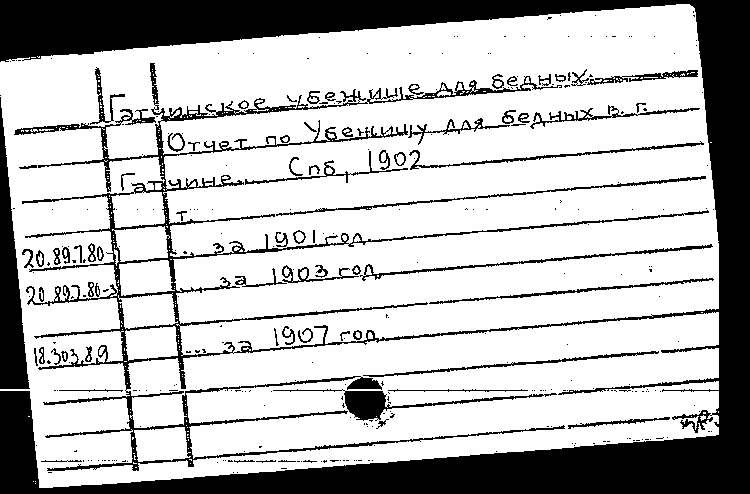 Гатчинское убежище для бедных.
Отчет по Убежищу для бедных в г.
Гатчине... Спб, 1902
т.
20.89.7.80- ... за 1901 год.
20.89.7.80-3 ... за 1903 год.
18.303.8.9 ... за 1907 год.